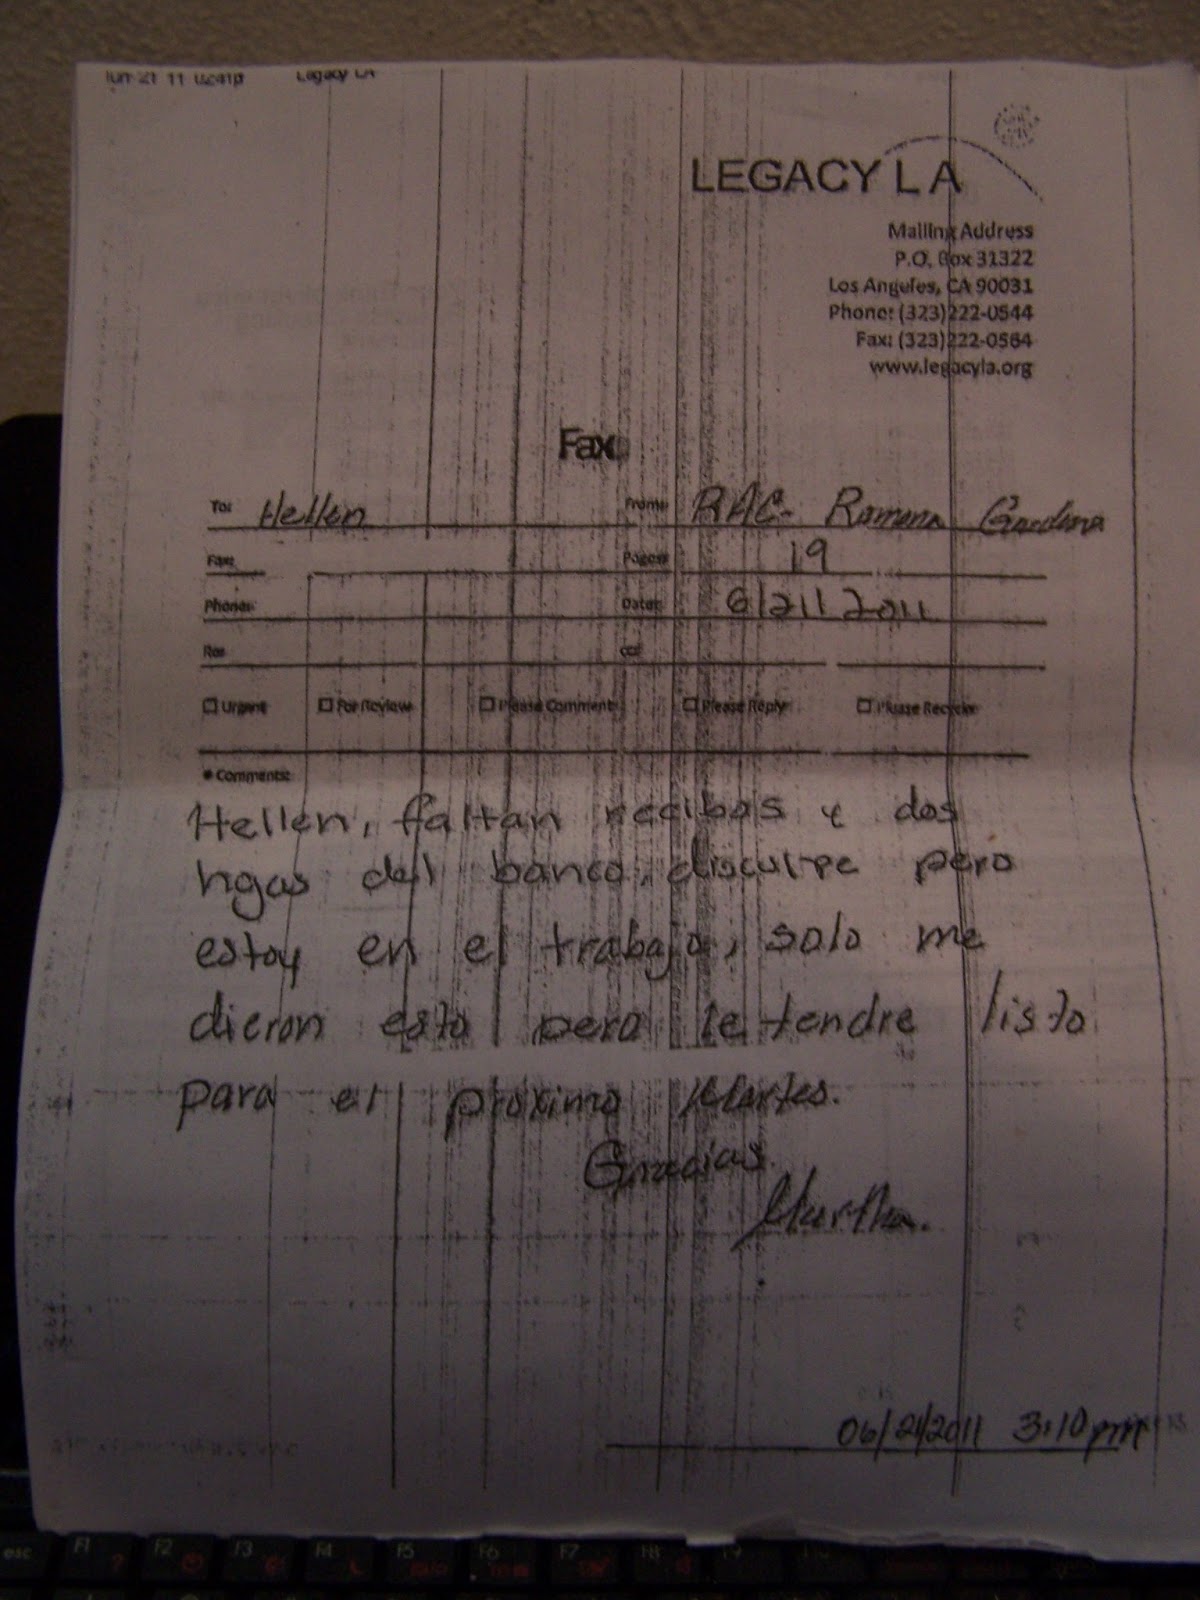 Jun 21 11 02:41p Legacy LA
LEGACY LA
Mailing Address
P.O. Box 31322
Los Angeles, CA 90031
Phone: (323)222-0544
Fax: (323)222-0564
www.legacyla.org
Fax
To: Hellen From: RAC- Ramona Gardens
Fax: Pages: 19
Phone: Date: 6/21/2011
Re: cc:
Urgent For Review Please Comment Please Reply Please Recycle
Comments:
Hellen, faltan recibos y dos
hgas del banco, disculpe pero
estoy en el trabajo, solo me
dieron esto pero le tendre listo
para el próximo Martes.
Gracias.
Martha.
06/21/2011 3:10pm